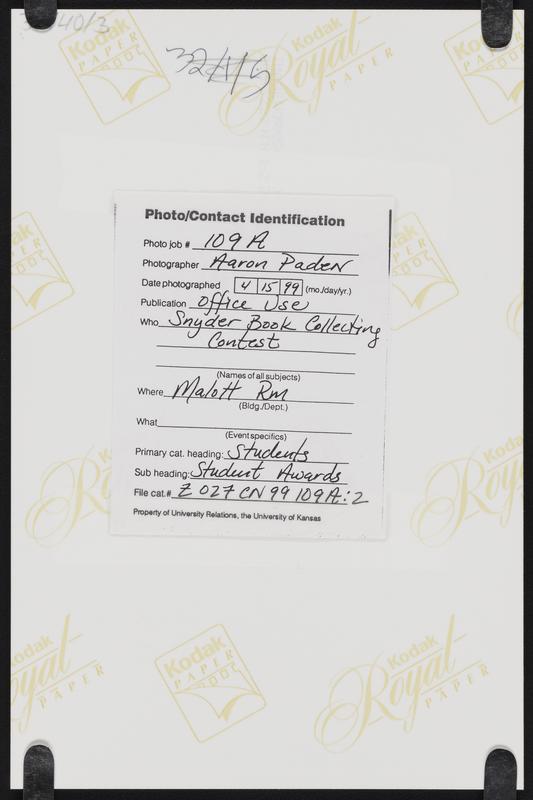 40/3
Kodak PAPER
Kodak Royal PAPER
Photo/Contact Identification
Photo job # 109 A
Photographer Aaron Paden
Date photographed 4 15 99 (mo./day/yr.)
Publication Office Use
Who Snyder Book Collecting
Contest
(Names of all subjects)
Where Malott Rm
(Bldg./Dept.)
What
(Event specifics)
Primary cat. heading: Students
Sub heading: Student Awards
File cat.# Z 027 CN 99 109A:2
Property of University Relations, the University of Kansas
Kodak
Royal
PAPER
Kodak
PAPER
Kodak
Royal
PAPER